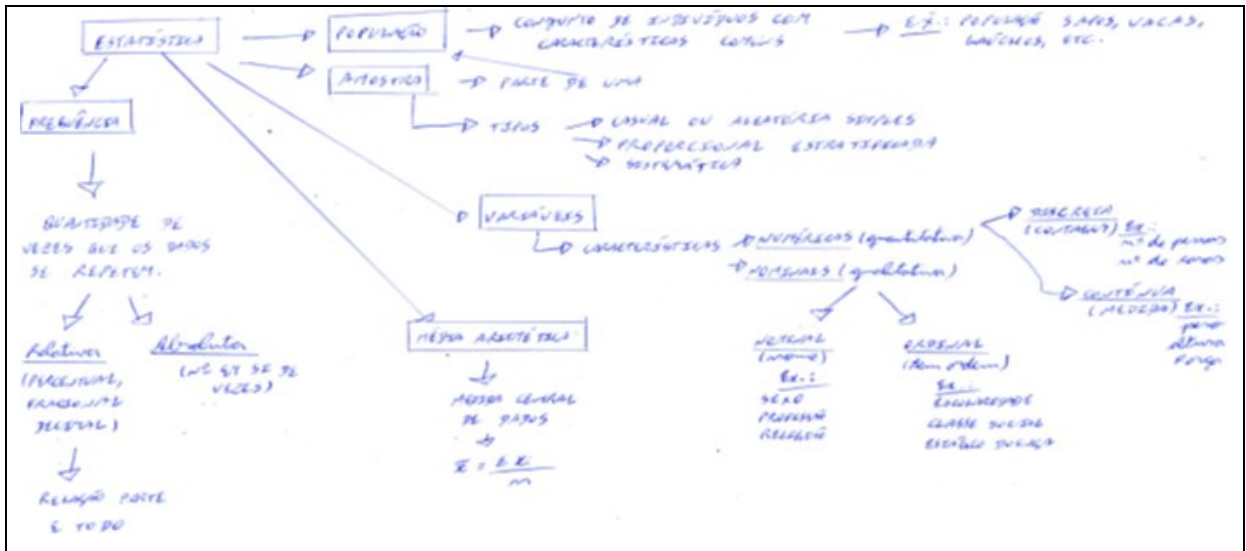 ESTATÍSTICA
POPULAÇÃO
CONJUNTO DE INDIVÍDUOS COM
CARACTERÍSTICAS COMUNS
Ex.: POPULAÇÃO SAPOS, VACAS,
GAÚCHOS, ETC.
AMOSTRA
PARTE DE UMA
TIPOS
CASUAL OU ALEATÓRIA SIMPLES
PROPORCIONAL ESTRATIFICADA
SISTEMÁTICA
FREQUÊNCIA
QUANTIDADE DE
VEZES QUE OS DADOS
SE REPETEM.
Relativa
(PERCENTUAL,
FRACIONAL
DECIMAL)
RELAÇÃO PARTE
E TODO
Absoluta
(Nº DE
VEZES)
VARIÁVEIS
CARACTERÍSTICAS
NUMÉRICAS (quantitativa)
NOMINAIS (qualitativa)
DISCRETA
(CONTAGEM) Ex.:
nº de pessoas
nº de
CONTÍNUA
(MEDIDA) Ex.:
peso
altura
Força
NOMINAL
(nome)
Ex.:
SEXO
PROFISSÃO
RELIGIÃO
ORDINAL
(tem ordem)
Ex.:
ESCOLARIDADE
CLASSE SOCIAL
ESTÁGIO DOENÇA
MÉDIA ARITMÉTICA
MEDIDA CENTRAL
DE DADOS
x̄ = Σ xi
n